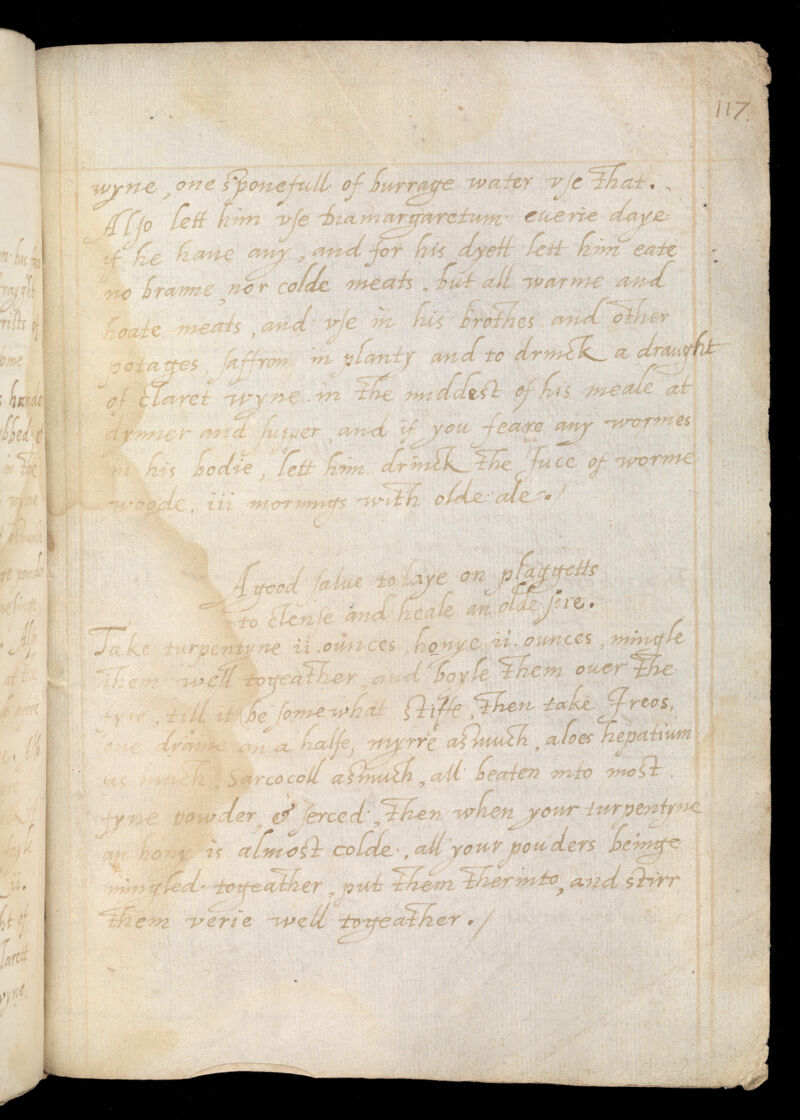 117
wyne, one sponefull of burrage water vse that.
Also lett him vse Diamargaretum euerie daye
if he haue any, and for his dyett lett him eate
no brawne, nor colde meats, but all warme and
hoate meats, and vse in his brothes and other
potages, saffron in planty and to drinck a draught
of claret wyne in the middest of his meale at
dynner and supper, and if you feare any wormes
in his bodie, lett him drinck the Juce of worme
woode, iii mornings with olde ale./
A good salue to laye on plaggetts
to clense and heale an olde sore.
Take turpentyne ii ounces, honye ii ounces, mingle
them well togeather, and boyle them over the
fyre, till it be somewhat stiffe, then take Ireos,
one drame an a halfe, myrre asmuch, aloes hepatium
as much, Sarcocoll asmuch, all beaten into most
fyne powder, & serced, then when your turpentyne
an hony is almost colde, all your pouders beinge
mingled togeather, put them therinto, and stirr
them verie well togeather./